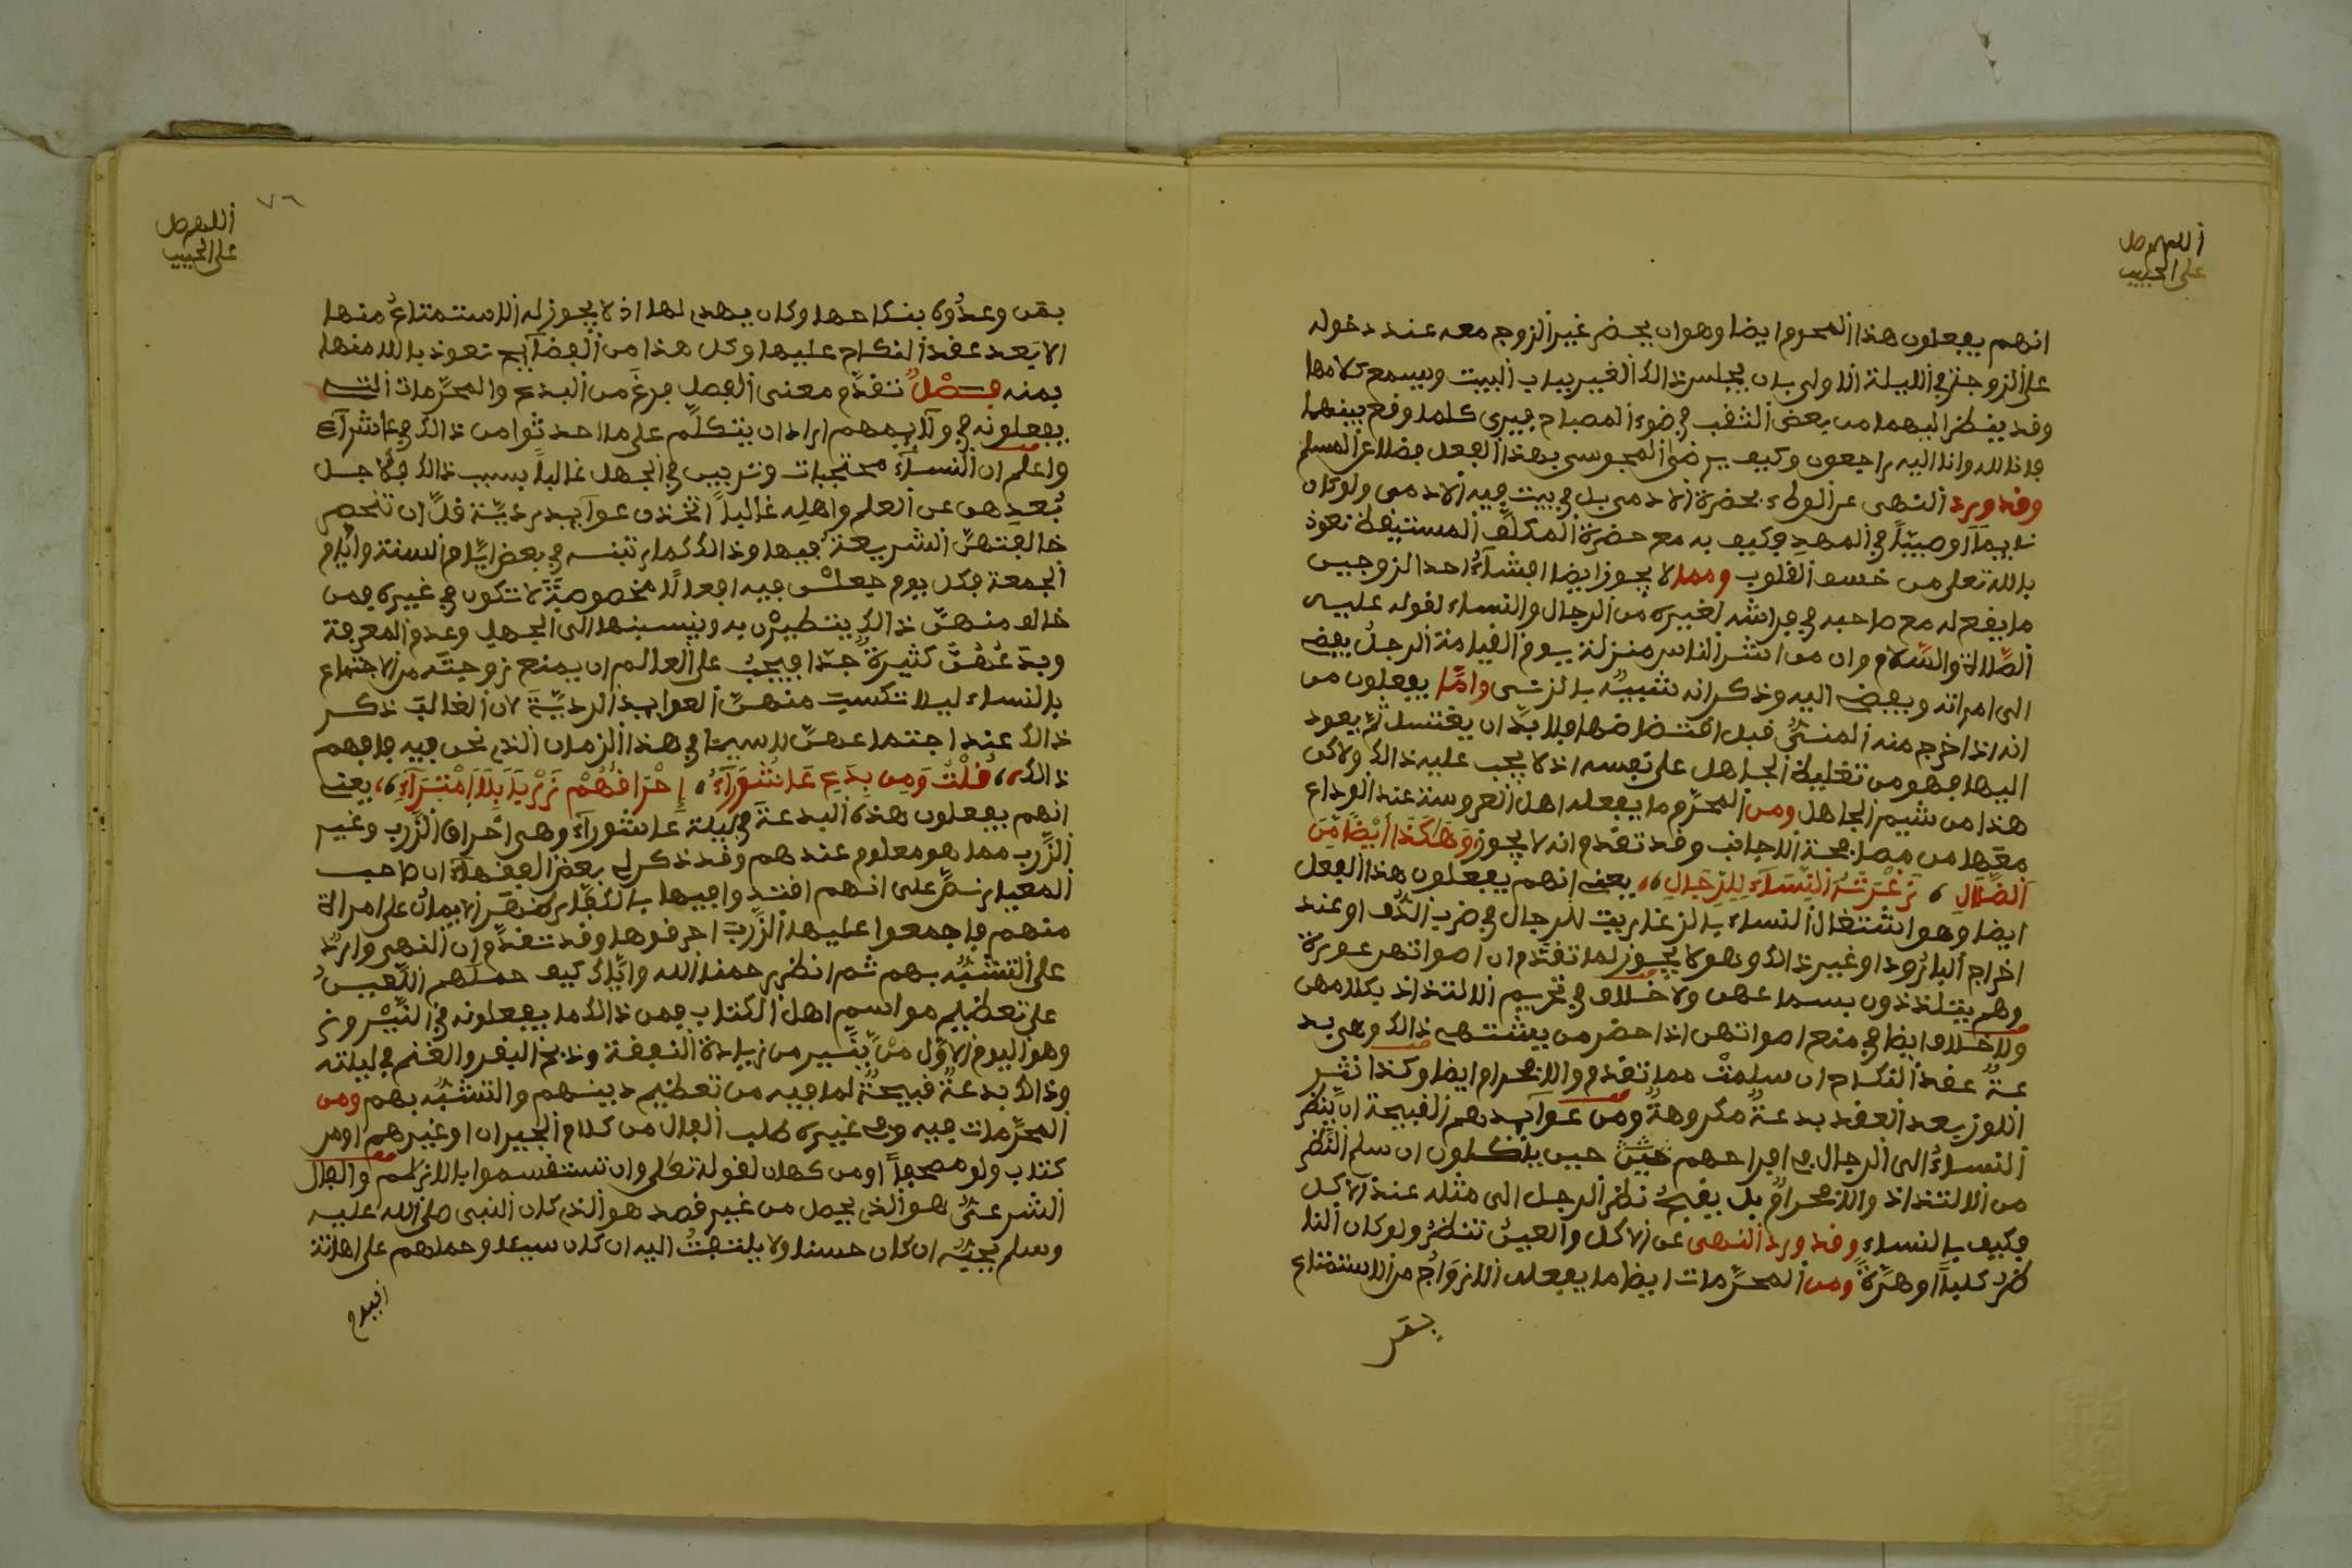 اللهم صل
على الحبيب
انهم يفعلون هذا المحرم ايضا وهو ان يحضر غير الزوج معه عند دخوله
على الزوجة في الليلة الاولى بان يجلس ذالك الغير بباب البيت ويسمع كلامها
وقد ينظر اليهما من بعض الثقب في ضوء المصباح فيرى كلما وقع بينهما
فانا لله وانا اليه راجعون وكيف يرضى المجوسي بهذا الفعل فضلا عن المسلم
وقد ورد النهى عن الوطء بحضرة الادمى بل في بيت فيه الادمى ولو كان
نايما او صبيا في المهد فكيف به مع حضرة المكلف المستيقظ نعوذ
بالله تعلى من خسف القلوب ومما لا يجوز ايضا افشاء احد الزوجين
ما يفعله مع صاحبه في فراشه لغيره من الرجال والنساء لقوله عليه
الصلاة والسلام وان من اشر الناس منزلة يوم القيامة الرجل يفضى
الى امراته وتفضى اليه وذكر انه شبيه بالزنى واما يفعلون من
انه اذا خرج منه المنى قبل افتضاضها فلا بد ان يغتسل ثم يعود
اليها فهو من تغليظ الجاهل على نفسه اذ لا يجب عليه ذالك ولاكن
هذا من شيم الجاهل ومن المحرم ما يفعله اهل العروسة عند الوداع
معها من مصافحة الاجانب وقد تقدم انه لا يجوز وهكذا ايضا من
الضلال ، زغرتة النساء للرجال ،، يعنى انهم يفعلون هذا الفعل
ايضا وهو اشتغال النساء بالزغاريت للرجال في ضرب الدف او عند
اخراج البارود او غير ذالك وهو لا يجوز لما تقدم ان اصواتهن عورة
وهم يتلذذون بسماعهن ولا خلاف في تحريم الالتذاذ بكلامهن
ولا خلاف ايضا في منع اصواتهن اذا حضر من يشتهى ذالك وهى بد
عة عقد النكاح ان سلمت مما تقدم والا فحرام ايضا وكذا نثر
اللوز بعد العقد بدعة مكروهة ومن عوايدهم القبيحة ان ينظر
النساء الى الرجال في افراحهم حين ياكلون ان سلم النظر
من الالتذاذ والا فحرام بل يقبح نظر الرجل الى مثله عند الاكل
فكيف بالنساء وقد ورد النهى عن الاكل والعين تنظر ولو كان النا
ظر كلبا او هرة ومن المحرمات ايضا ما يفعله الازواج من الاستمتاع
بقر
اللهم صل
على الحبيب
٧٦
بقن وعدوه بنكاحها وكان يهدى لها اذ لا يجوز له الاستمتاع منها
الا بعد عقد النكاح عليها وكل هذا من الفضايح نعوذ بالله منها
بمنه فصل تقدم معنى الفصل فرغ من البدع والمحرمات التى
يفعلونه في ولايمهم اراد ان يتكلم على ما احدثوا من ذالك في عاشراء
واعلم ان النساء محتجبات وتربين في الجهل غالبا بسبب ذالك فلاجل
بعدهن عن العلم واهله غالبا اتخذن عوايد ردية قل ان تنحصر
خالفتهن الشريعة فيها وذالك كما رتبنه في بعض ايام السنة وايام
الجمعة فكل يوم جعلن فيه افعالا مخصوصة لا تكون في غيره فمن
خالف منهن ذالك يتطيرن به وينسبنها الى الجهل وعدم المعرفة
وبدعهن كثيرة جدا فيجب على العالم ان يمنع زوجته من الاجتماع
بالنساء ليلا تكتسب منهن العوايد الردية لان الغالب ذكر
ذالك عند اجتماعهن لاسيما في هذا الزمان الذى نحن فيه فافهم
ذالك ،، قلت ومن بدع عاشوراء ، إحرافهم زربا بلا امتراء ،، يعنى
انهم يفعلون هذه البدعة في ليلة عاشوراء وهى احراق الزرب وغير
الزرب مما هو معلوم عندهم وقد ذكر لى بعض الفقهاء ان صاحب
المعيار نص على انهم اقتدوا فيها بالكفار نقر الايمان على امراة
منهم فاجمعوا عليها الزرب احرقوها وقد تقدم ان النهى وارد
على التشبه بهم ثم انظر رحمنا الله واياك كيف حملهم اللعين
على تعظيم مواسم اهل الكتاب فمن ذالك ما يفعلونه في النيروز
وهو اليوم الاول من ينير من زيادة النفقة وذبح البقر والغنم في ليلته
وذالك بدعة قبيحة لما فيه من تعظيم دينهم والتشبه بهم ومن
المحرمات فيه وفى غيره طلب الفال من كلام الجيران او غيرهم او من
كتاب ولو مصحفا او من كهان لقوله تعلى وان تستقسموا بالازلام والفال
الشرعى هو الذى يحصل من غير قصد هو الذى كان النبى صلى الله عليه
وسلم يحبه ان كان حسنا ولا يلتفت اليه ان كان سيئا وحملهم على اهانة